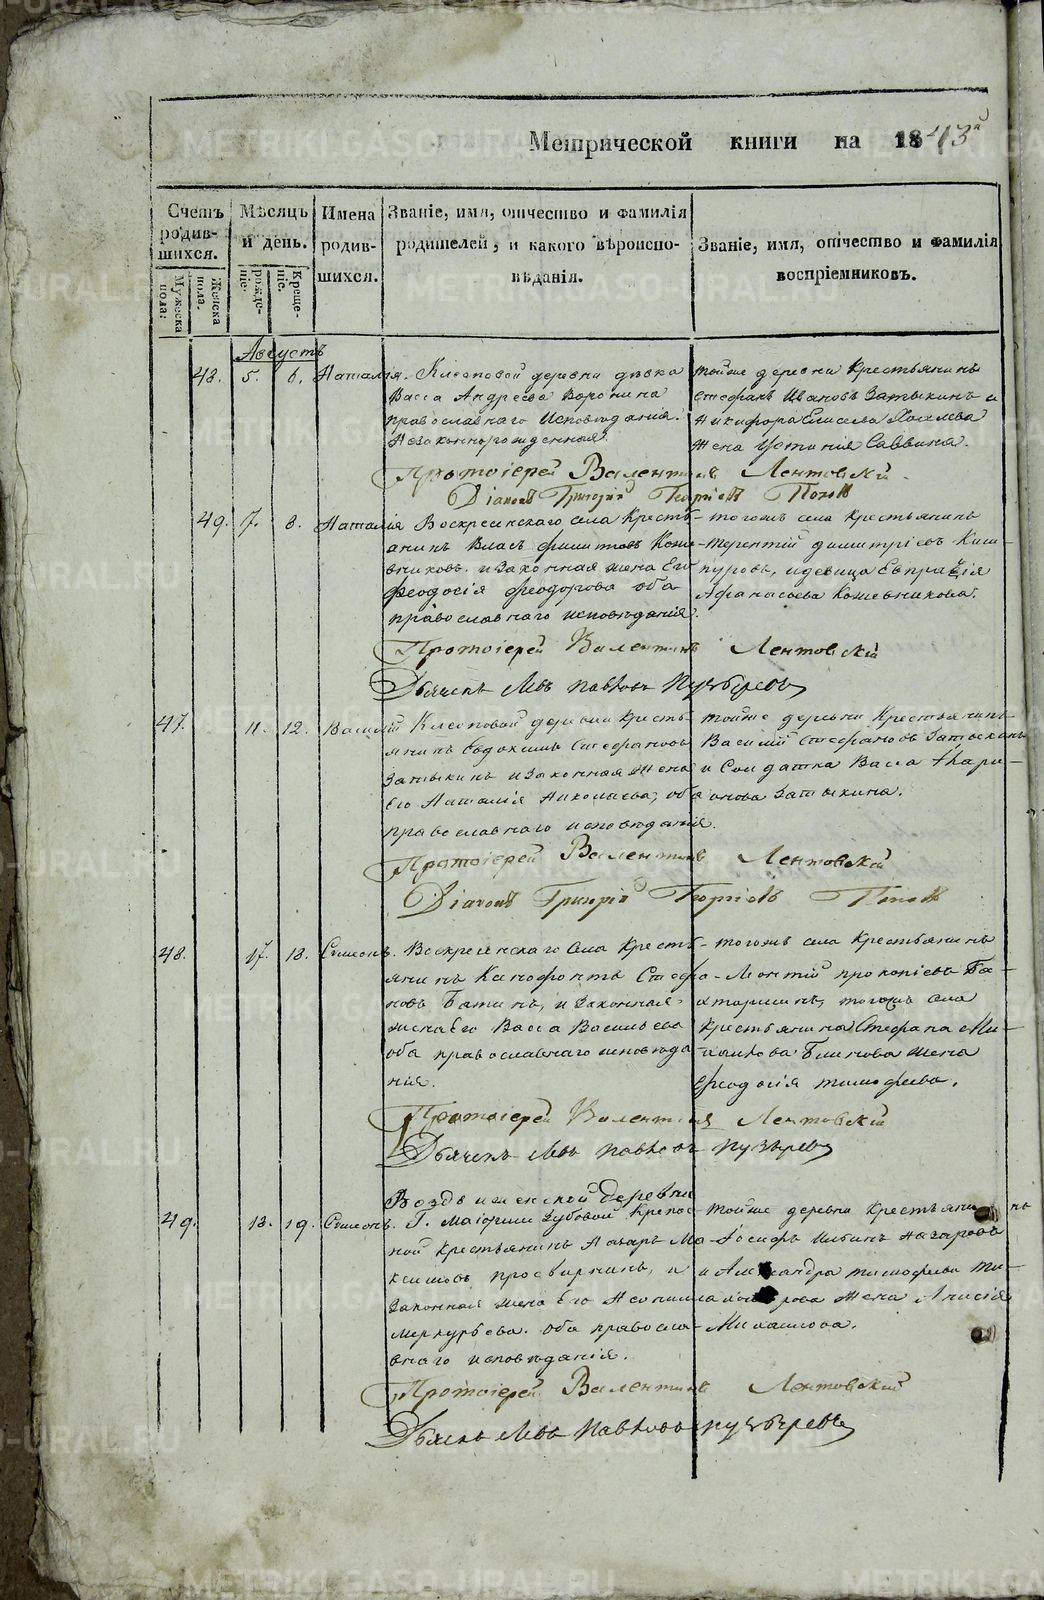 Метрической книги на 1843й
Счетъ родившихся.
Мужеска пола:
Женска пола.
Мѣсяцъ и день.
рожденіе.
Крещеніе.
Имена родившихся.
Званіе, имя, отчество и фамилія
родителей, и какого вѣроиспо-
вѣданія.
Званіе, имя, отчество и фамилія
воспріемниковъ.
Августъ
48. 5. 6. Наталія. деревни дѣвка
Васса Андреева Воронина
православнаго исповѣданія.
Незаконнорожденная.
тойже деревни крестьянинъ
Стефанъ Ивановъ Затыкинъ и
Никифора Елисеева
жена Устинія Саввина.
Протоіерей Валентинъ Лентовскій.
Діаконъ Григорій Георгіевъ Поповъ
49. 7. 8. Наталія Воскресенскаго села кресть-
янинъ Власъ Филиповъ Коже-
вниковъ. и законная жена Его
Феодосія Феодорова оба
православнаго исповѣданія.
тогожъ села крестьянинъ
Терентій Димитріевъ
и девица Евпраксія
Афанасьева Кожевникова.
Протоіерей Валентинъ Лентовскій
Дьячекъ Левъ Павловъ Пузыревъ
47. 11. 12. Василій деревни кресть-
янинъ Евдокимъ Стефановъ
Затыкинъ и законная жена
Его Наталія Николаева, оба
православнаго исповѣданія.
тойже деревни крестьянинъ
Василій Стефановъ Затыкинъ
и Солдатка Васса
Затыкина.
Протоіерей Валентинъ Лентовскій
Діаконъ Григорій Георгіевъ Поповъ
48. 17. 18. Симеонъ. Воскресенскаго села кресть-
янинъ Стефа-
новъ и законная
жена Его Васса Васильева
оба православнаго исповѣда-
нія.
тогожъ села крестьянинъ
Леонтій Прокопіевъ
тогожъ села
крестьянина Стефана Ми-
хайлова Блинова жена
Феодосія Тимофеева.
Протоіерей Валентинъ Лентовскій
Дьячекъ Левъ Павловъ Пузыревъ
Воздвиженской деревни
49. 18. 19. Симеонъ. Г. Маіорши Зубовой крепос-
ной крестьянинъ Назаръ Ма-
ксимовъ и
законная жена Его
Меркурьева. оба правосла-
внаго исповѣданія.
тойже деревни крестьянинъ
Іосифъ Назаровъ
и Александра Тимофеева
жена Анисія
Михаилова.
Протоіерей Валентинъ Лентовскій
Дьячекъ Левъ Павловъ Пузыревъ
METRIKI.GASO-URAL.RU